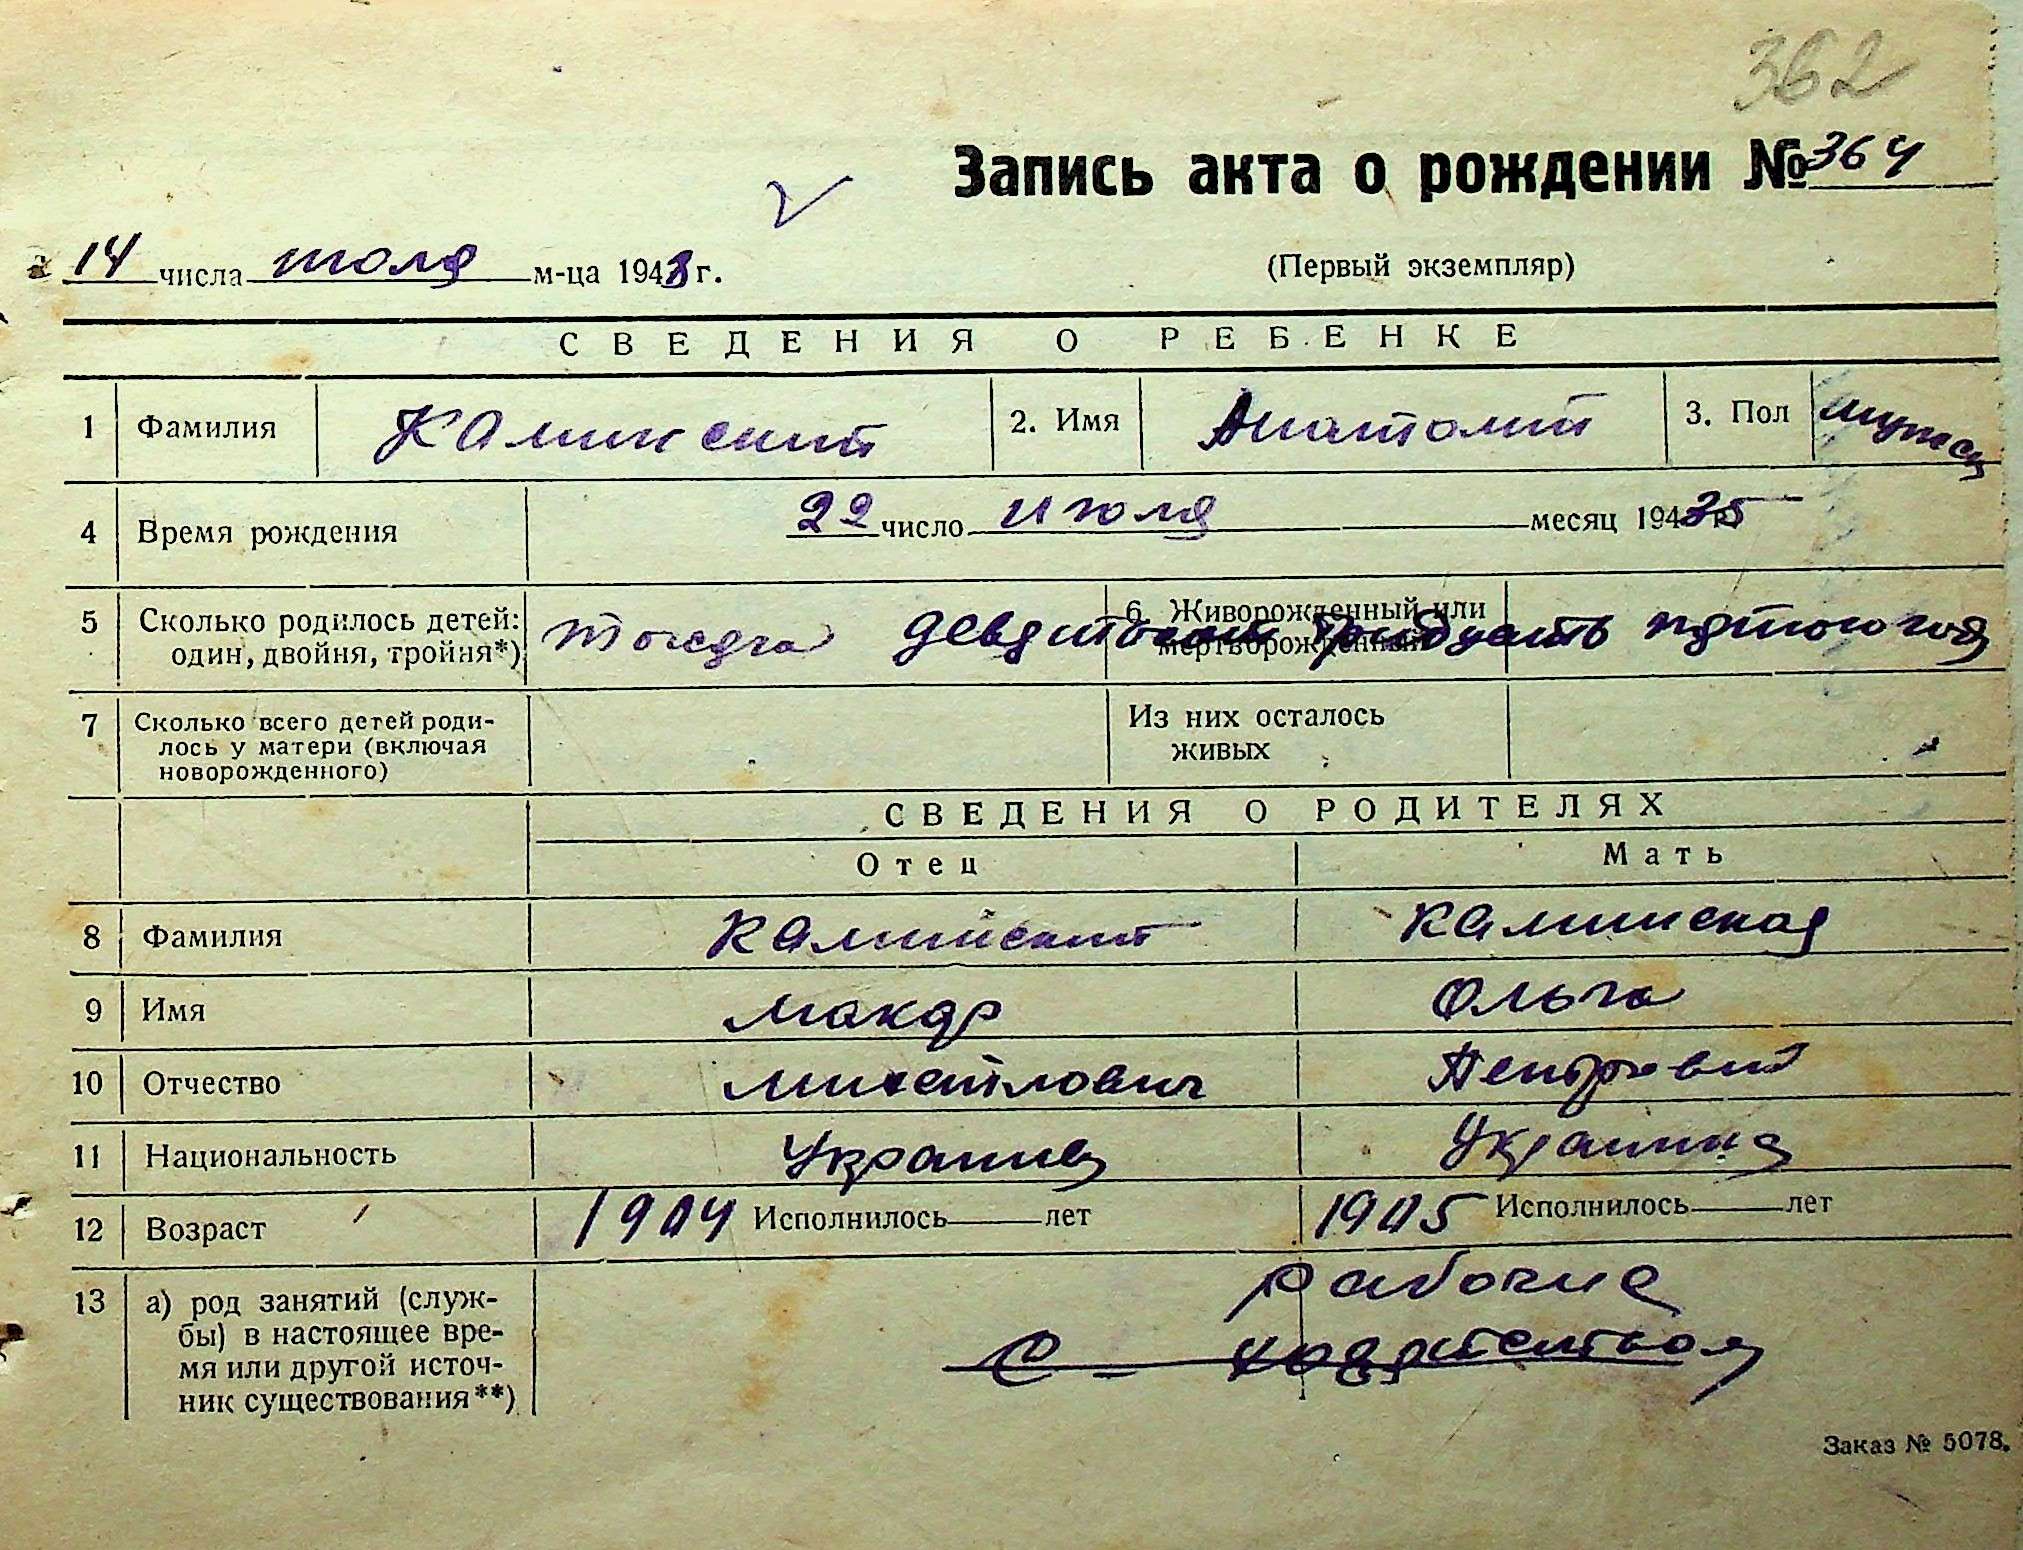 362
Запись акта о рождении № 364
14 числа июля м-ца 1943 г.
(Первый экземпляр)
СВЕДЕНИЯ О РЕБЕНКЕ
1 Фамилия Каминский 2. Имя Анатолий 3. Пол мужск
4 Время рождения 22 число июля месяц 1935
5 Сколько родилось детей: один, двойня, тройня*) 6. Живорожденный или мертворожденный
тысяча девятьсот тридцать пятого года
7 Сколько всего детей роди-
лось у матери (включая
новорожденного)
Из них осталось
живых
СВЕДЕНИЯ О РОДИТЕЛЯХ
Отец Мать
8 Фамилия Каминский Каминская
9 Имя Макар Ольга
10 Отчество Михайлович
11 Национальность Украинец Украинка
12 Возраст 1904 Исполнилось лет 1905 Исполнилось лет
13 а) род занятий (служ-
бы) в настоящее вре-
мя или другой источ-
ник существования**)
рабочие
Заказ № 5078.